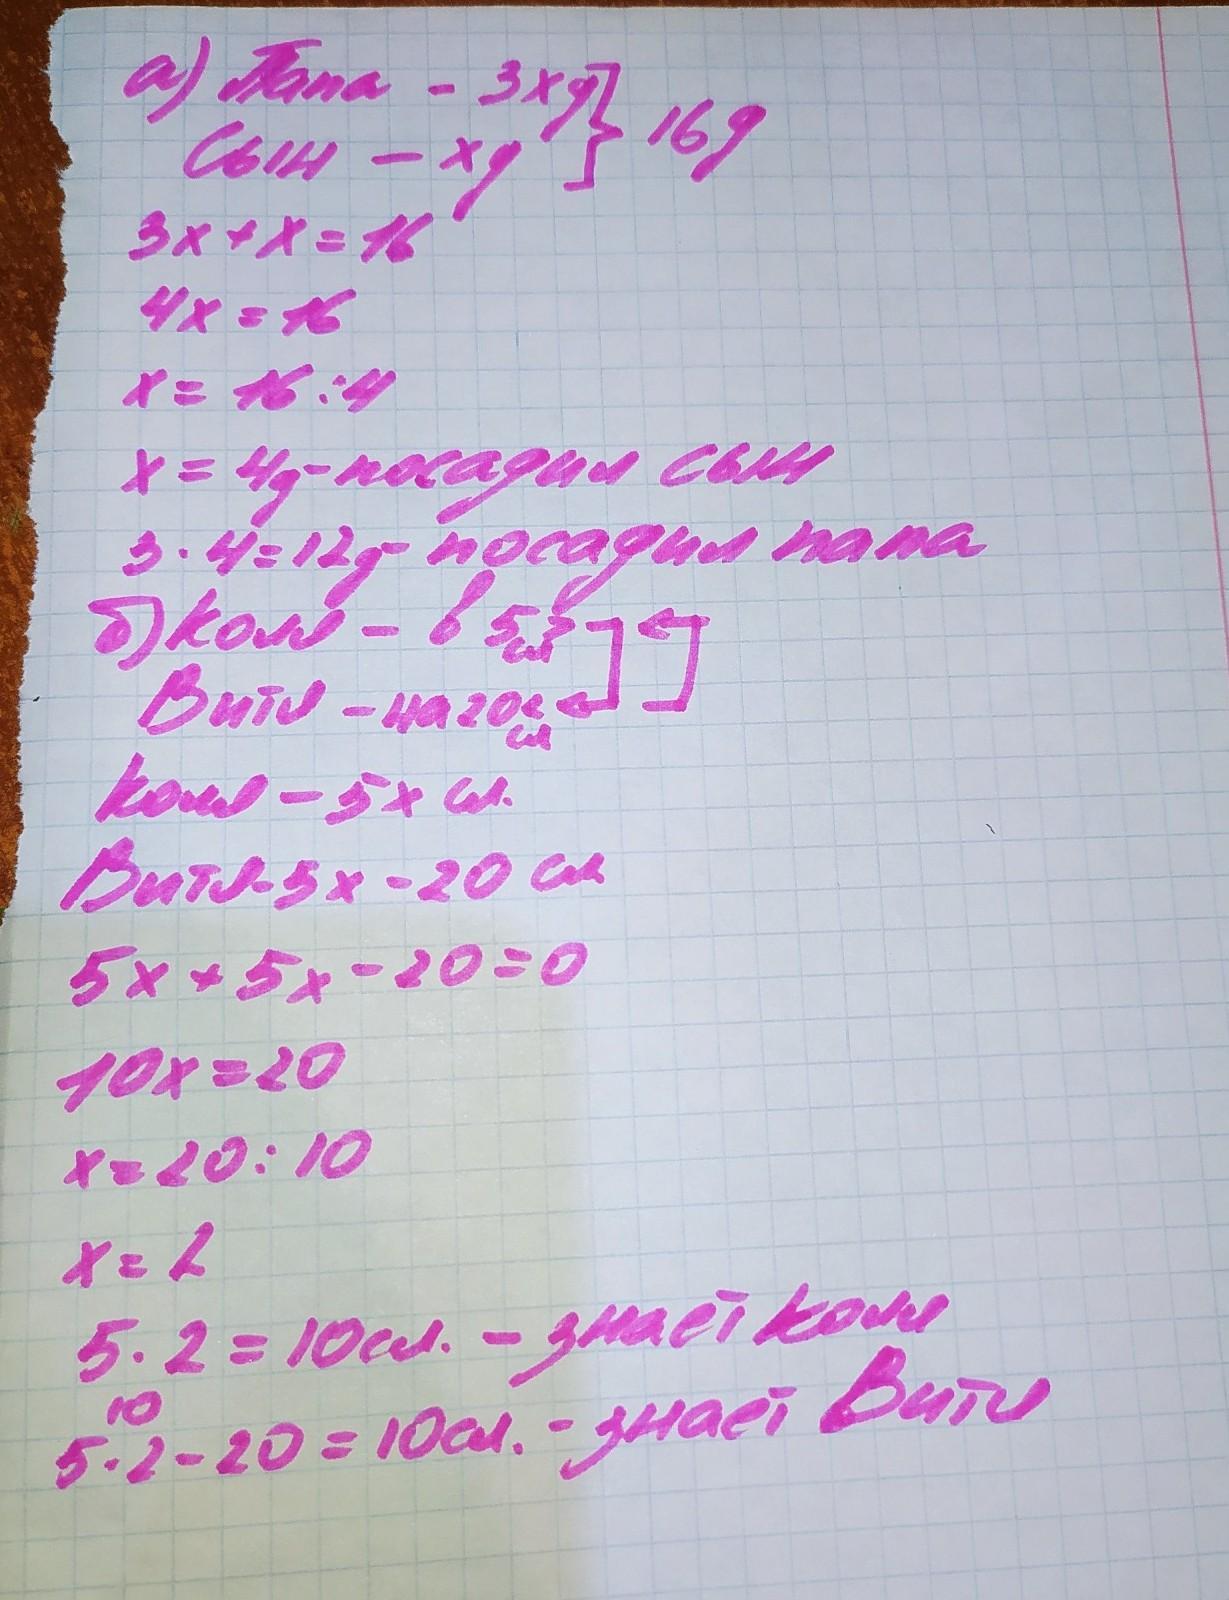 а) Папа - 3хд
Сын - хд } 16д
3х+х=16
4х=16
х=16:4
х=4д-посадил сын
3·4=12д-посадил папа
б) Коля - в 5
сл
Витя - на 20
сл
Коля - 5х сл.
Витя-5х-20 сл
5х+5х-20=0
10х=20
х=20:10
х=2
5·2=10сл. - знает Коля
10
5·2-20=10сл. - знает Витя